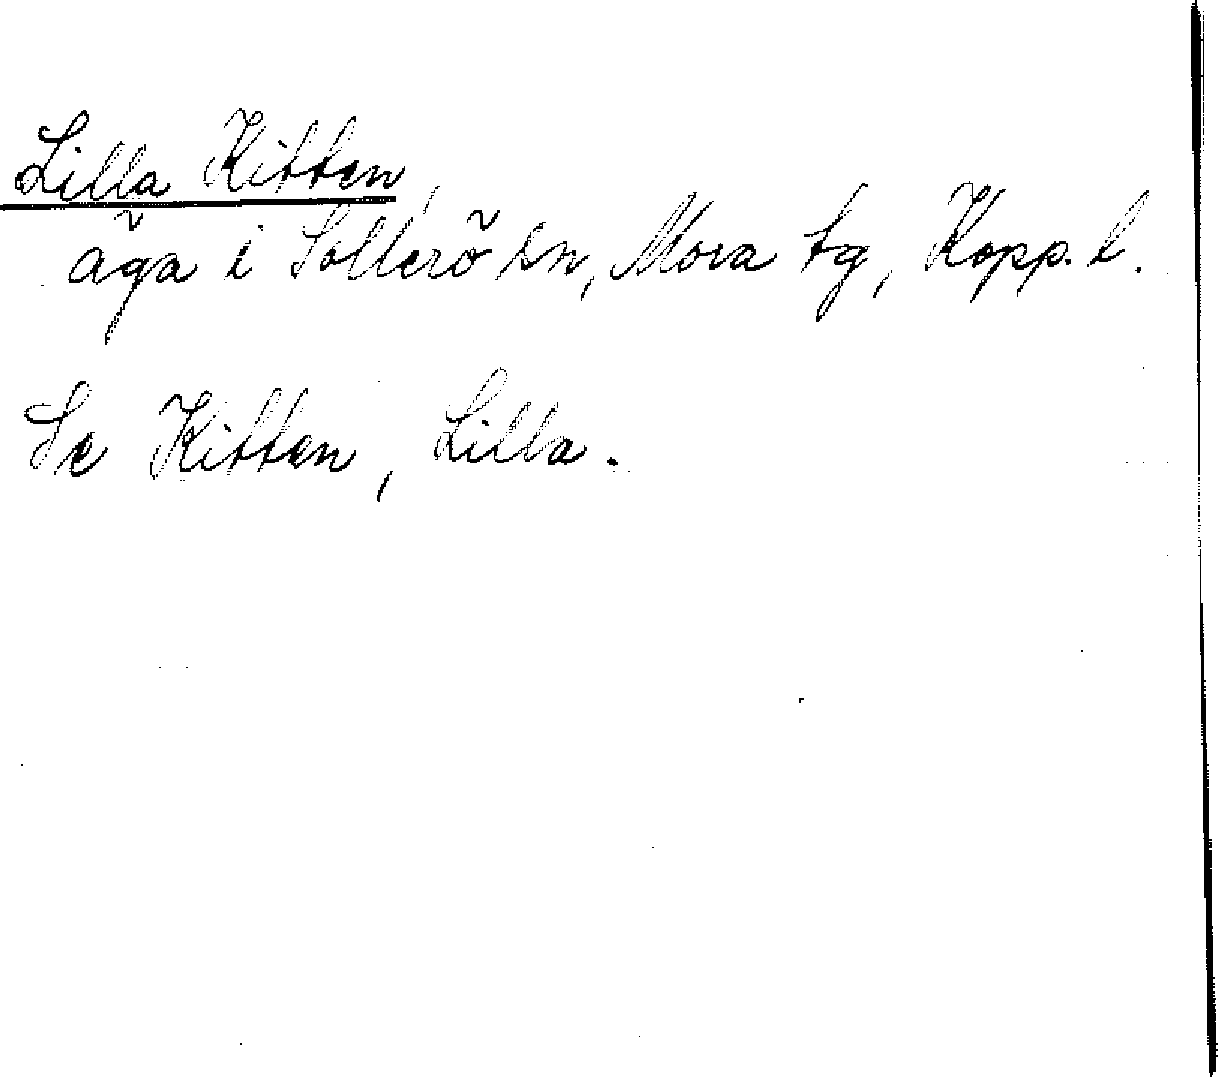 Lilla Kitten,
äga i Sollerö sn, Mora tg, Kopp. l.
Se Kitten, Lilla.